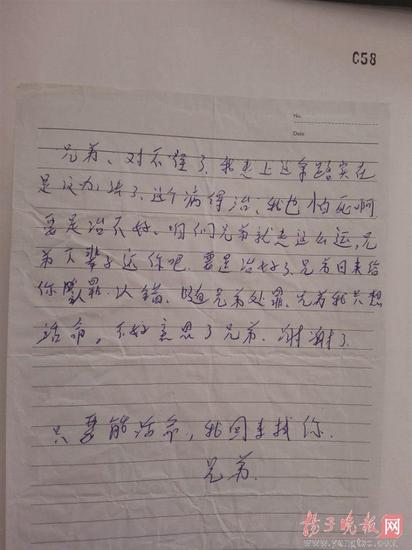 C58
No.
Date
兄弟、对不起了、我走上这条路实在
是没办法了、这个病得治、我也怕死啊
要是治不好、咱们兄弟就走这么远，兄
弟下辈子还你吧．要是治好了、兄弟回来给
你赔罪．认错、随兄弟处置、兄弟我只想
活命，不好意思了兄弟．谢谢了．
只要能活命，我回来找你．
兄弟．
扬子晚报网
www.yangtse.com